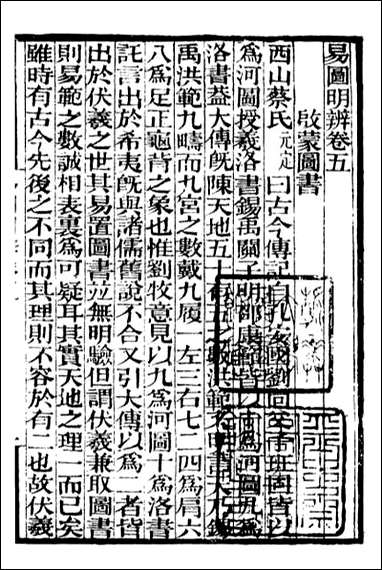 易圖明辨卷五
啟蒙圖書
西山蔡氏元定曰古今傳記自孔安國劉向父子班固皆以
為河圖授羲洛書錫禹關子明邵康節皆以十為河圖九為
洛書葢大傳旣陳天地五十有五之數洪範又明言天乃錫
禹洪範九疇而九宮之數戴九履一左三右七二四為肩六
八為足正龜背之象也惟劉牧意見以九為河圖十為洛書
託言出於希夷旣與諸儒舊說不合又引大傳以為二者皆
出於伏羲之世其易置圖書並無明驗但謂伏羲兼取圖書
則易範之數誠相表裏為可疑耳其實天地之理一而已矣
雖時有古今先後之不同而其理則不容於有二也故伏羲